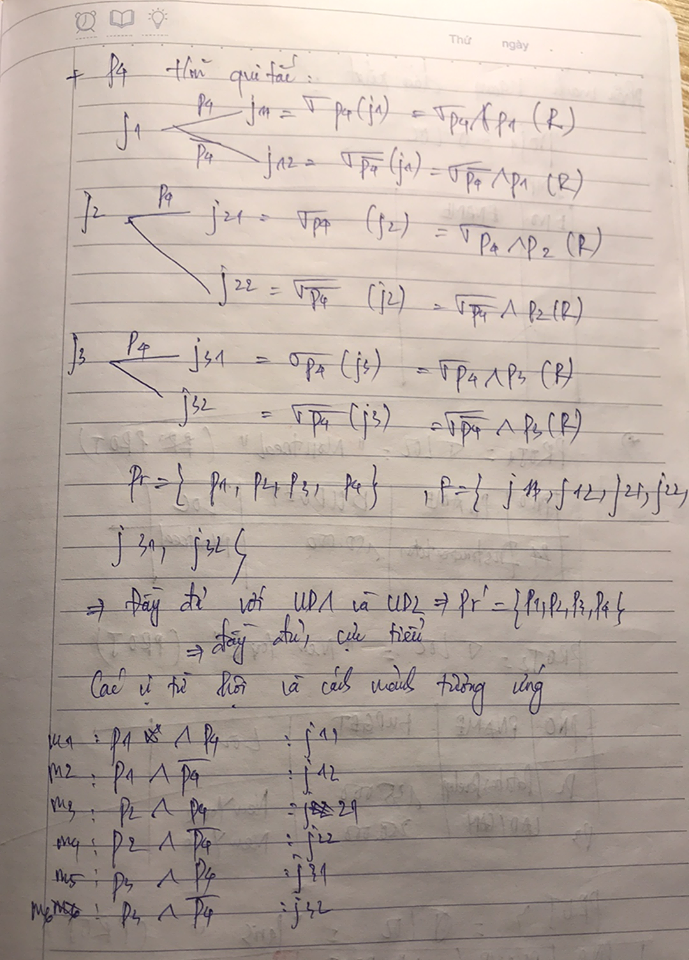 Thứ ngày
+ p4 thoả qui tắc:
j1 p4 j11 = σ p4 (j1) = σ p4 ∧ p1 (R)
p̅4̅ j12 = σ p̅4̅ (j1) = σ p̅4̅ ∧ p1 (R)
j2 p4 j21 = σ p4 (j2) = σ p4 ∧ p2 (R)
j22 = σ p̅4̅ (j2) = σ p̅4̅ ∧ p2 (R)
j3 p4 j31 = σ p4 (j3) = σ p4 ∧ p3 (R)
j32 = σ p̅4̅ (j3) = σ p̅4̅ ∧ p3 (R)
Pr = { p1, p2, p3, p4 } , F = { j11, j12, j21, j22,
j31, j32 }
⇒ Đầy đủ với UD1 và UD2 ⇒ Pr' = {p1, p2, p3, p4}
⇒ đầy đủ, cực tiểu
Các vị từ hội và các mảnh tương ứng
m1 : p1 ∧ p4 : j11
m2 : p1 ∧ p̅4̅ : j12
m3 : p2 ∧ p4 : j21
m4 : p2 ∧ p̅4̅ : j22
m5 : p3 ∧ p4 : j31
m6 : p3 ∧ p̅4̅ : j32